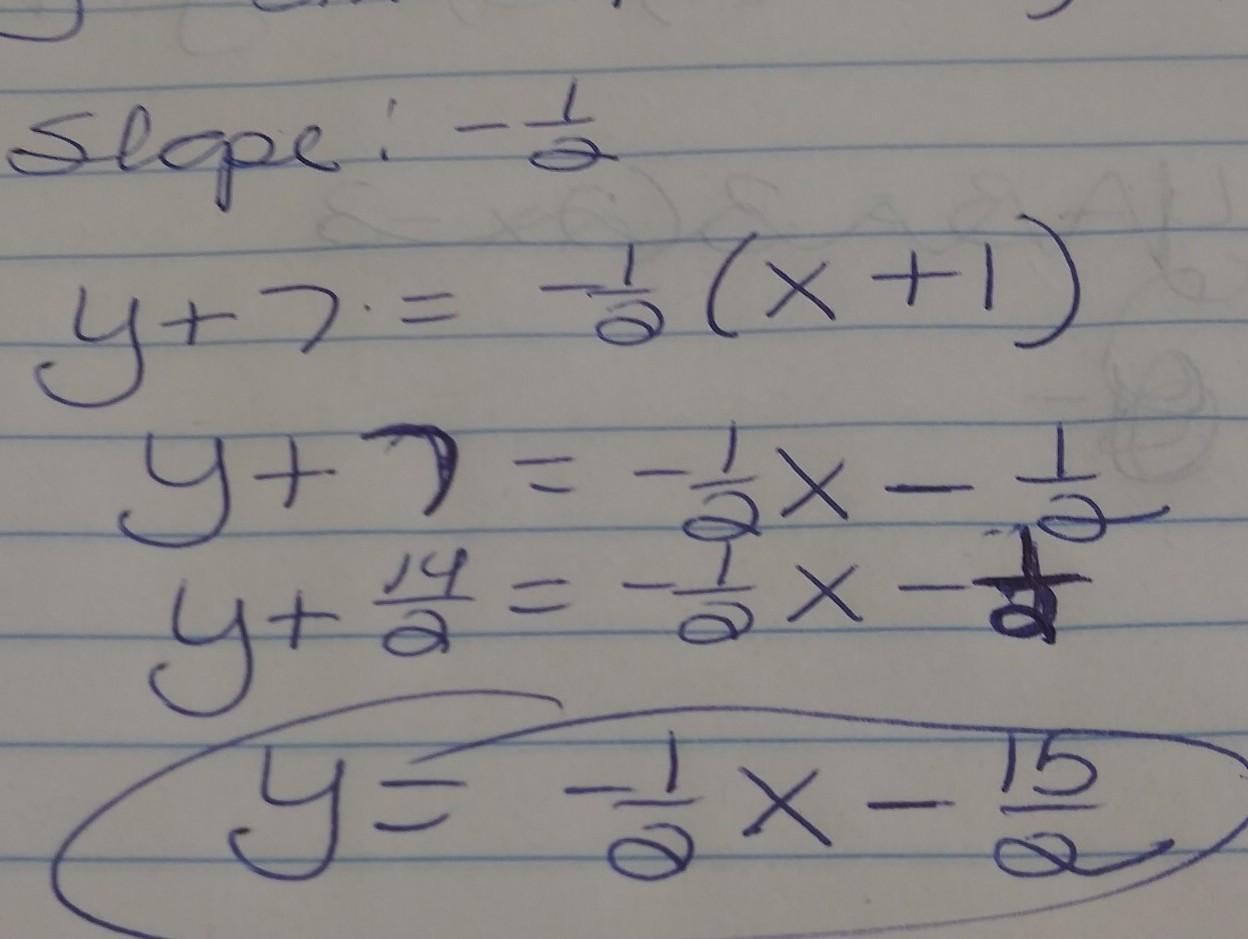 Slope: -1/2
y+7 = -1/2(x+1)
y+7 = -1/2x - 1/2
y+14/2 = -1/2x - 1/2
y = -1/2x - 15/2